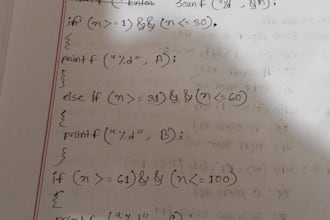 scanf ("%d", &n);
if (n >= 1) && (n <= 30).
{
printf ("%d", A);
}
else if (n >= 31) && (n <= 60)
{
printf ("%d", B);
}
if (n >= 61) && (n <= 100)
{